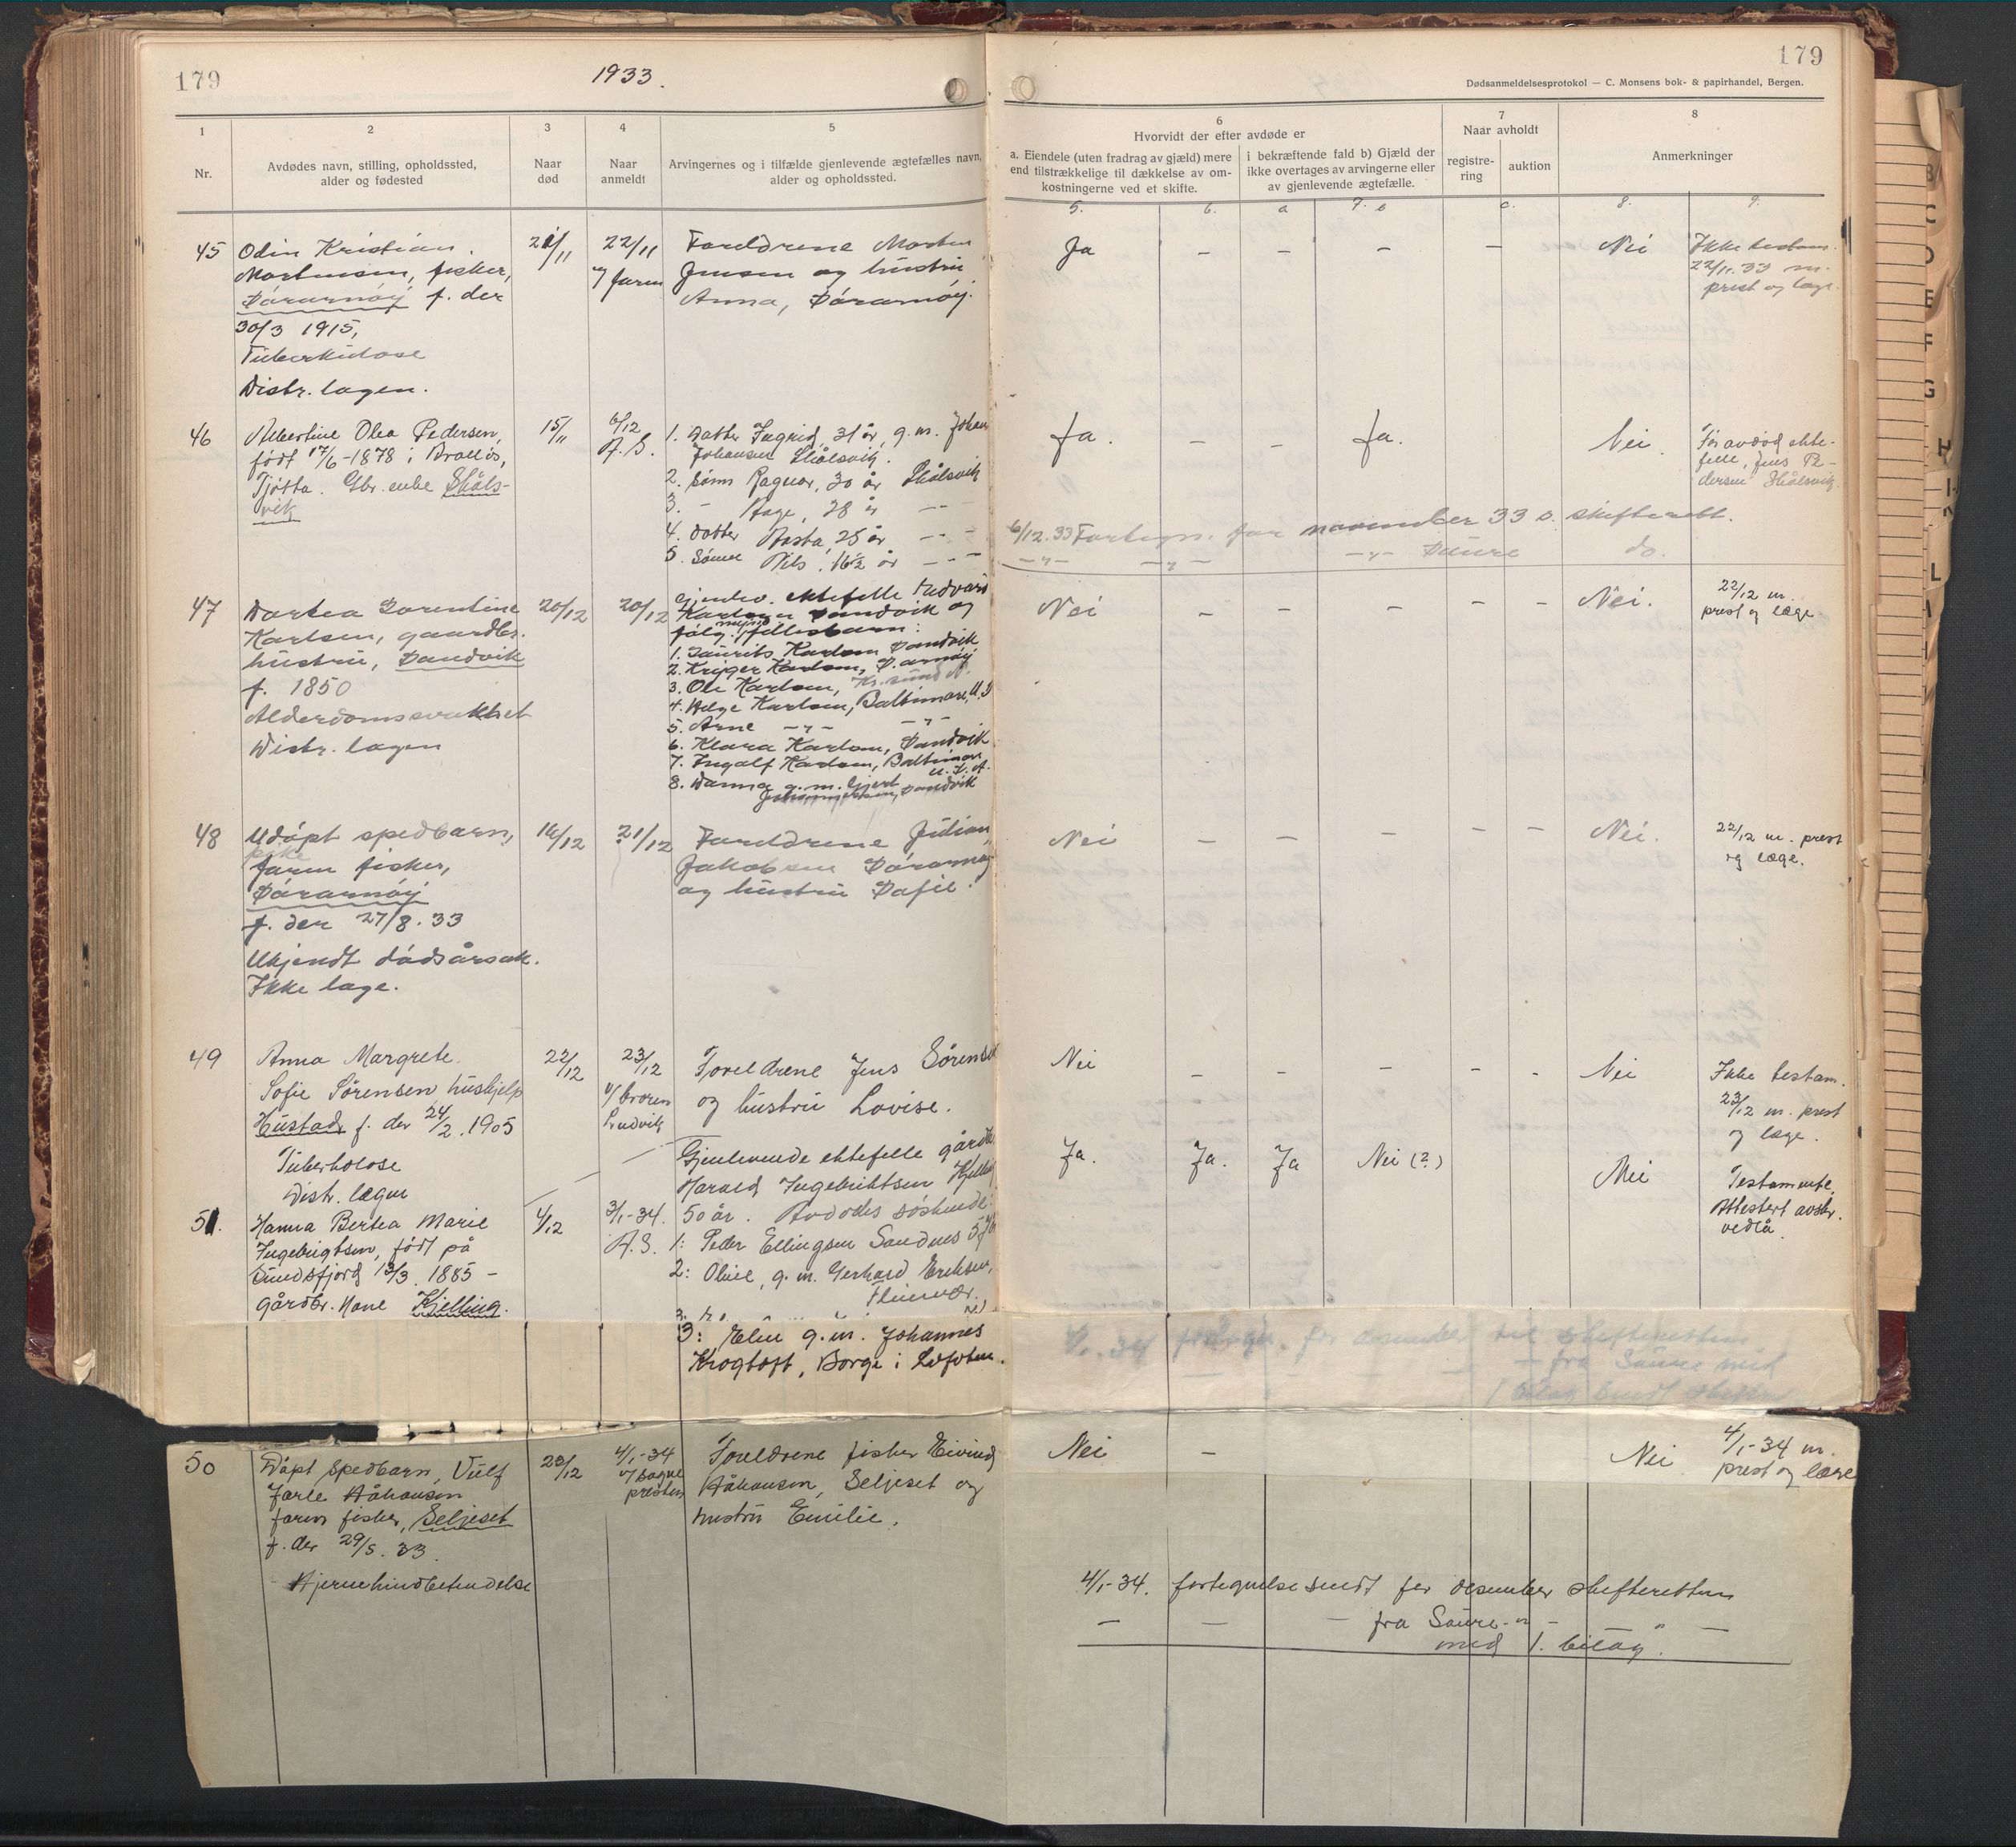 179
1933.
179
Dødsanmeldelsesprotokol — C. Monsens bok- & papirhandel, Bergen.
1
2
3
4
5
6
7
8
Nr.
Avdødes navn, stilling, opholdssted,
alder og fødested
Naar
død
Naar
anmeldt
Arvingernes og i tilfælde gjenlevende ægtefælles navn,
alder og opholdssted.
Hvorvidt der efter avdøde er
a. Eiendele (uten fradrag av gjæld) mere
end tilstrækkelige til dækkelse av om-
kostningerne ved et skifte.
i bekræftende fald b) Gjæld der
ikke overtages av arvingerne eller
av gjenlevende ægtefælle.
Naar avholdt
registre-
ring
auktion
Anmerkninger
5.
6.
a
7. b
c.
8.
9.
45
Odin Kristian
Mortensen, fisker,
Sørarnøy f. der
30/3 1915,
Tuberkulose
Distr. lægen.
21/11
22/11
v/ faren
Foreldrene Morten
Jensen og hustru
Anna, Sørarnøy.
Ja
–
–
–
–
Nei
Ikke testam.
22/11.33 m.
prest og læge.
46
Albertine Olea Pedersen,
født 17/6-1878 i Brallos,
Tjøtta. Gbr. enke Skåls-
vik
15/11
6/12
A.S.
1. Datter Ingrid, 31 år, g.m. Johan
Johansen Skålsvik.
2. Sønn Ragnar, 30 år Skålsvik
3. – Aage, 28 år – –
4. Datter Asta, 25 år – –
5. Sønn Nils, 16½ år – –
Ja.
–
–
Ja.
Nei
Før avdød ekte-
felle, Jens Pe-
dersen Skålsvik.
6/12.33 Fortegn. for november 33 s. skifterett.
–"– –"– –"– Saure do.
47
Dortea Dorentine
Karlsen, gaardbr.
hustru, Sandvik
f. 1850
Alderdomssvakhet
Distr. lægen
20/12
20/12
Gjenlev. ektefelle Edvard
Karlsen Sandvik og
følg. mynd. fellesbarn:
1. Laurits Karlsen Sandvik
2. Krger Karlsen, S. arnøy
3. Ole Karlsen, Kr. sund N.
4. Helge Karlsen, Baltimore, U.S
5. Arne –"– –"–
6. Klara Karlsen, Sandvik
7. Ingolf Karlsen, Baltimore
U.S.A.
8. Danna g.m. Gjert
Johannessen, Sandvik
Nei
–
–
–
–
–
Nei.
22/12 m.
prest og læge
48
Udøpt spedbarn,
pike
faren fisker,
Sørarnøy
f. der 27/8.33
Ukjendt dødsårsak.
Ikke læge.
16/12
21/12
Foreldrene Julian
Jakobsen Sørarnøy
og hustru Sofie.
Nei
–
–
–
–
–
Nei.
22/12 m. prest
og læge.
49
Anna Margrete
Sofie Sørensen, hushjelp
Hustad f. der 24/2.1905
Tuberkolose
Distr. lægen
22/12
23/12
v/ broren
Ludvik
Foreldrene Jens Sørensen
og hustru Lovise.
Nei
–
–
–
–
–
Nei
Ikke testam.
23/12 m. prest
og læge.
51.
Hanna Bertea Marie
Ingebrigtsen, født på
Sundsfjord 13/3 1885 –
gårdbr. kone Kjelling.
4/12
3/1-34.
A.S.
Gjenlevende ektefelle gårdb
Harald Ingebriktsen Kjelling
50 år. Avdødes søskende:
1: Peder Ellingsen Sandnes
2: Oline, g.m. Gerhard Eriksen,
Fleinvær.
3: Elen g.m. Johannes
Krogtoft, Borge i Lofoten.
Ja.
Ja.
Ja
Nei (?)
Nei
Testamente.
Attestert avskr.
vedlå.
4/1.34 fortegn. for desember til skifteretten
– fra Saure med
1 bilag sendt skifter
50
Døpt spedbarn, Vulf
Jarle Håkonsen
faren fisker, Seljeset
f. der 29/5.33.
Hjernehindbetendelse
28/12
4/1-34
v/ sogne
presten
Foreldrene fisker Eivind
Håkonsen, Seljeset og
hustru Emilie.
Nei
–
Nei
4/1-34 m.
prest og læge
4/1-34. fortegnelse sendt for desember skifteretten
– – – fra Saure –"– –
med 1. bilag".